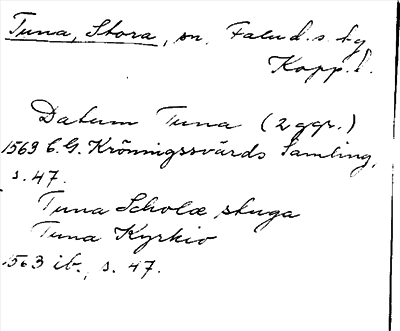 Tuna, Stora, sn. Falu d.s. tg
Kopp. l.
Datum Tuna (2 ggr.)
1569 C.G. Krönnigssvärds Samling,
s. 47.
Tuna Scholæ stuga
Tuna Kyrkio
1563 ib., s. 47.